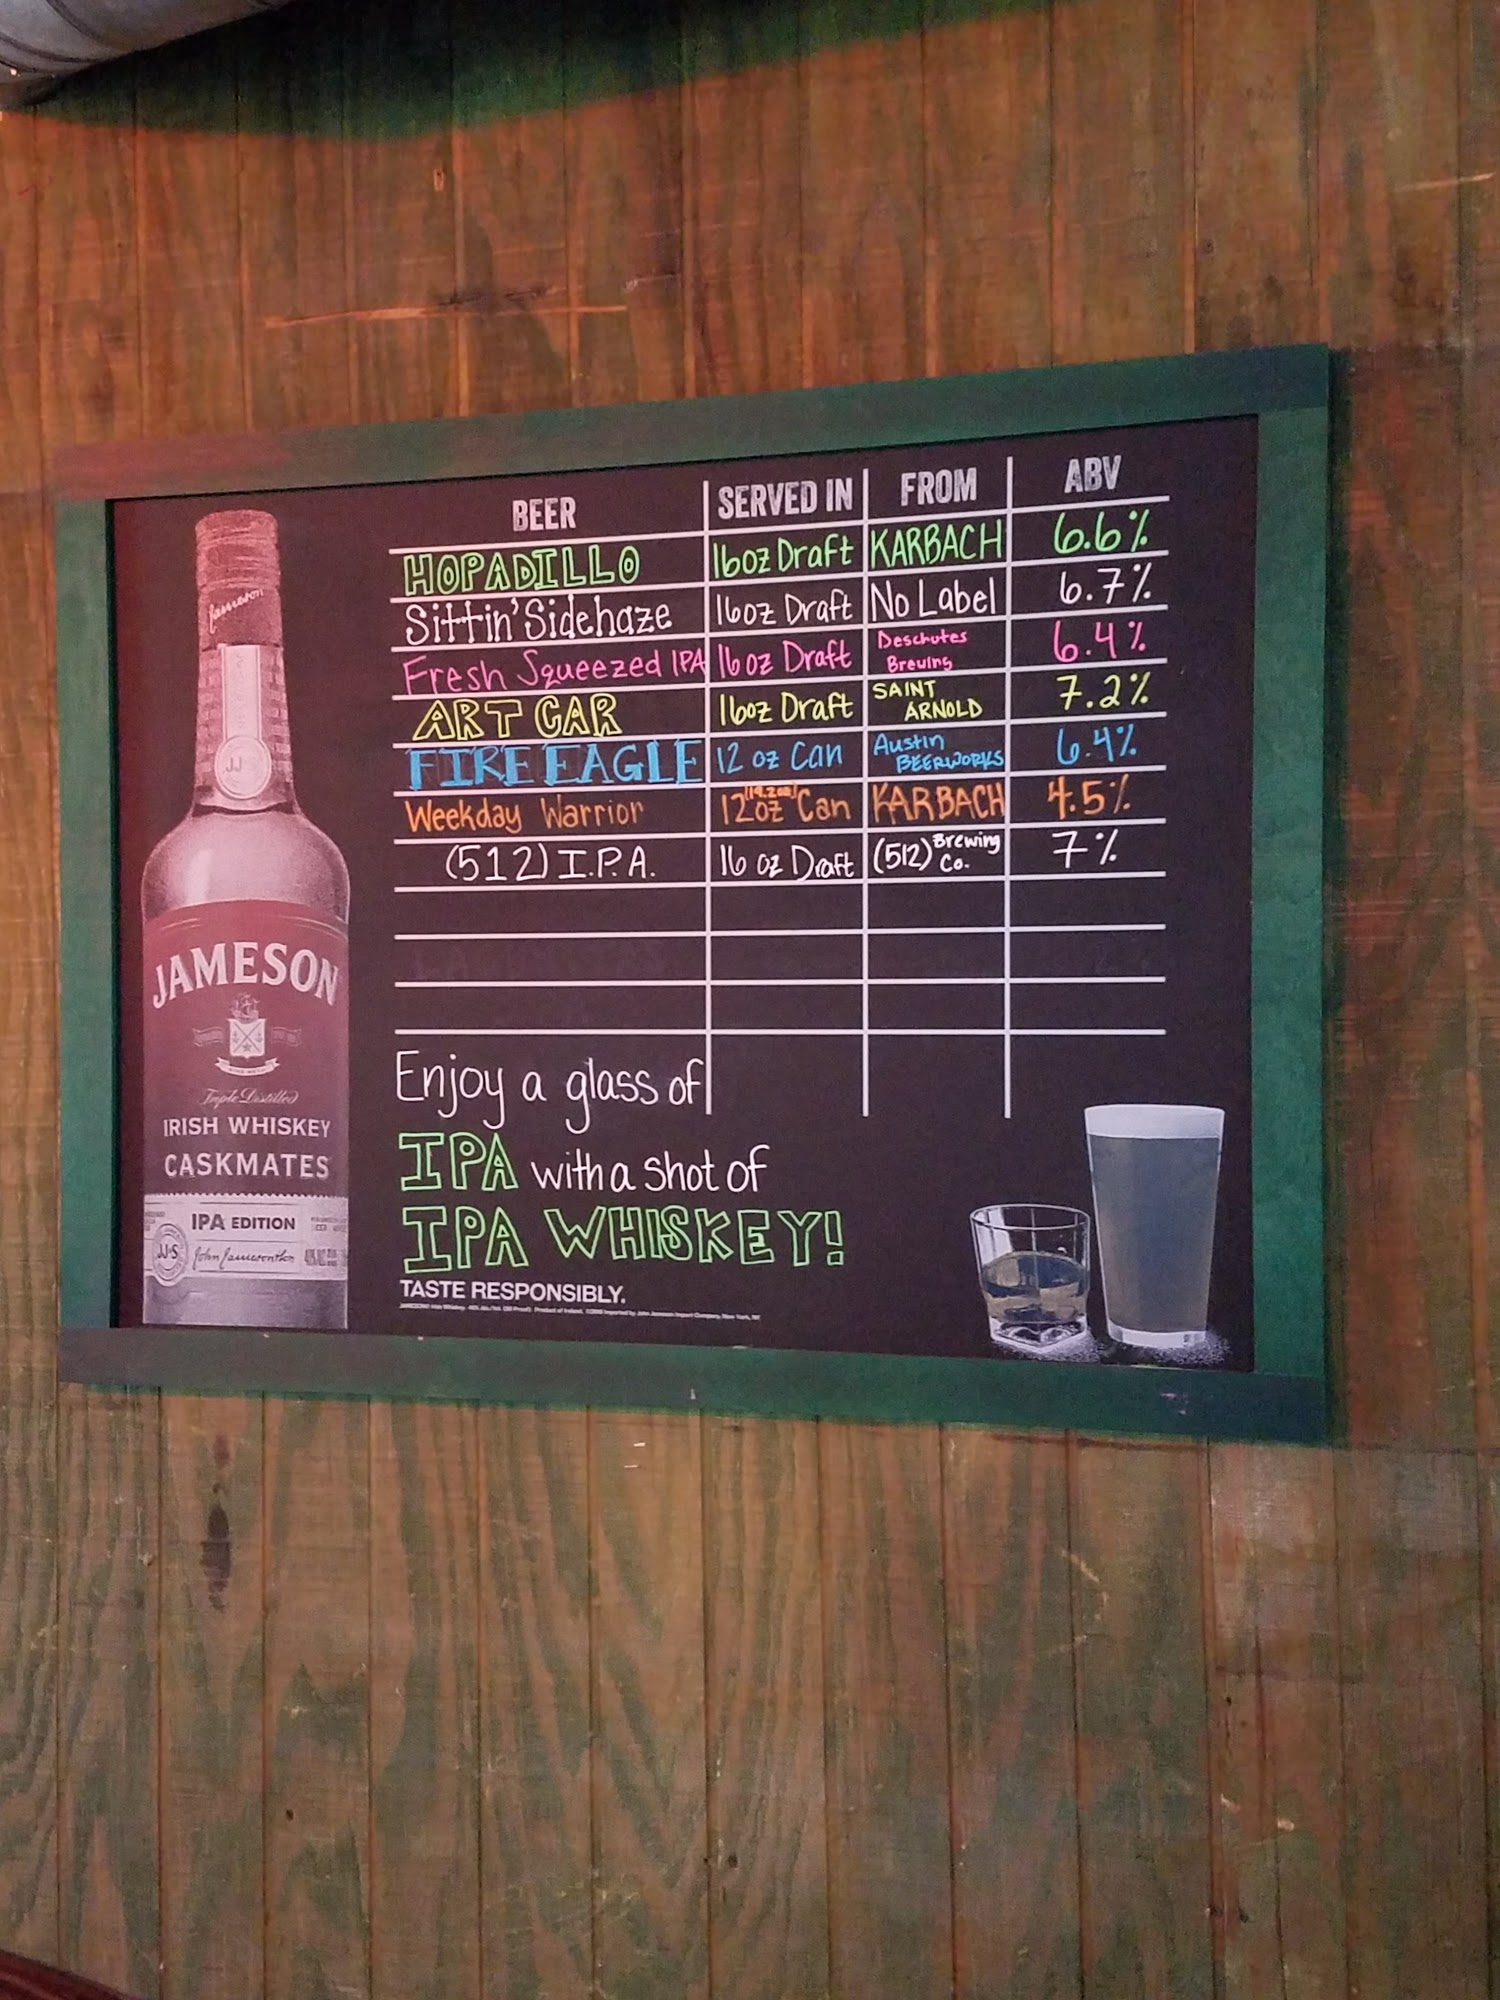 BEER SERVED IN FROM ABV
HOPADILLO 16oz Draft KARBACH 6.6%
Sittin' Sidehaze 16oz Draft No Label 6.7%
Fresh Squeezed IPA 16 oz Draft Deschutes Brewing 6.4%
ART CAR 16oz Draft SAINT ARNOLD 7.2%
FIRE EAGLE 12 oz Can Austin BEERWORKS 6.4%
Weekday Warrior 12 oz (19.2oz) Can KARBACH 4.5%
(512) I.P.A. 16 oz Draft (512) Brewing Co. 7%
Enjoy a glass of
IPA with a shot of
IPA WHISKEY!
TASTE RESPONSIBLY.
Jameson
JJ
JAMESON
Triple Distilled
IRISH WHISKEY
CASKMATES
IPA EDITION
JJ&S